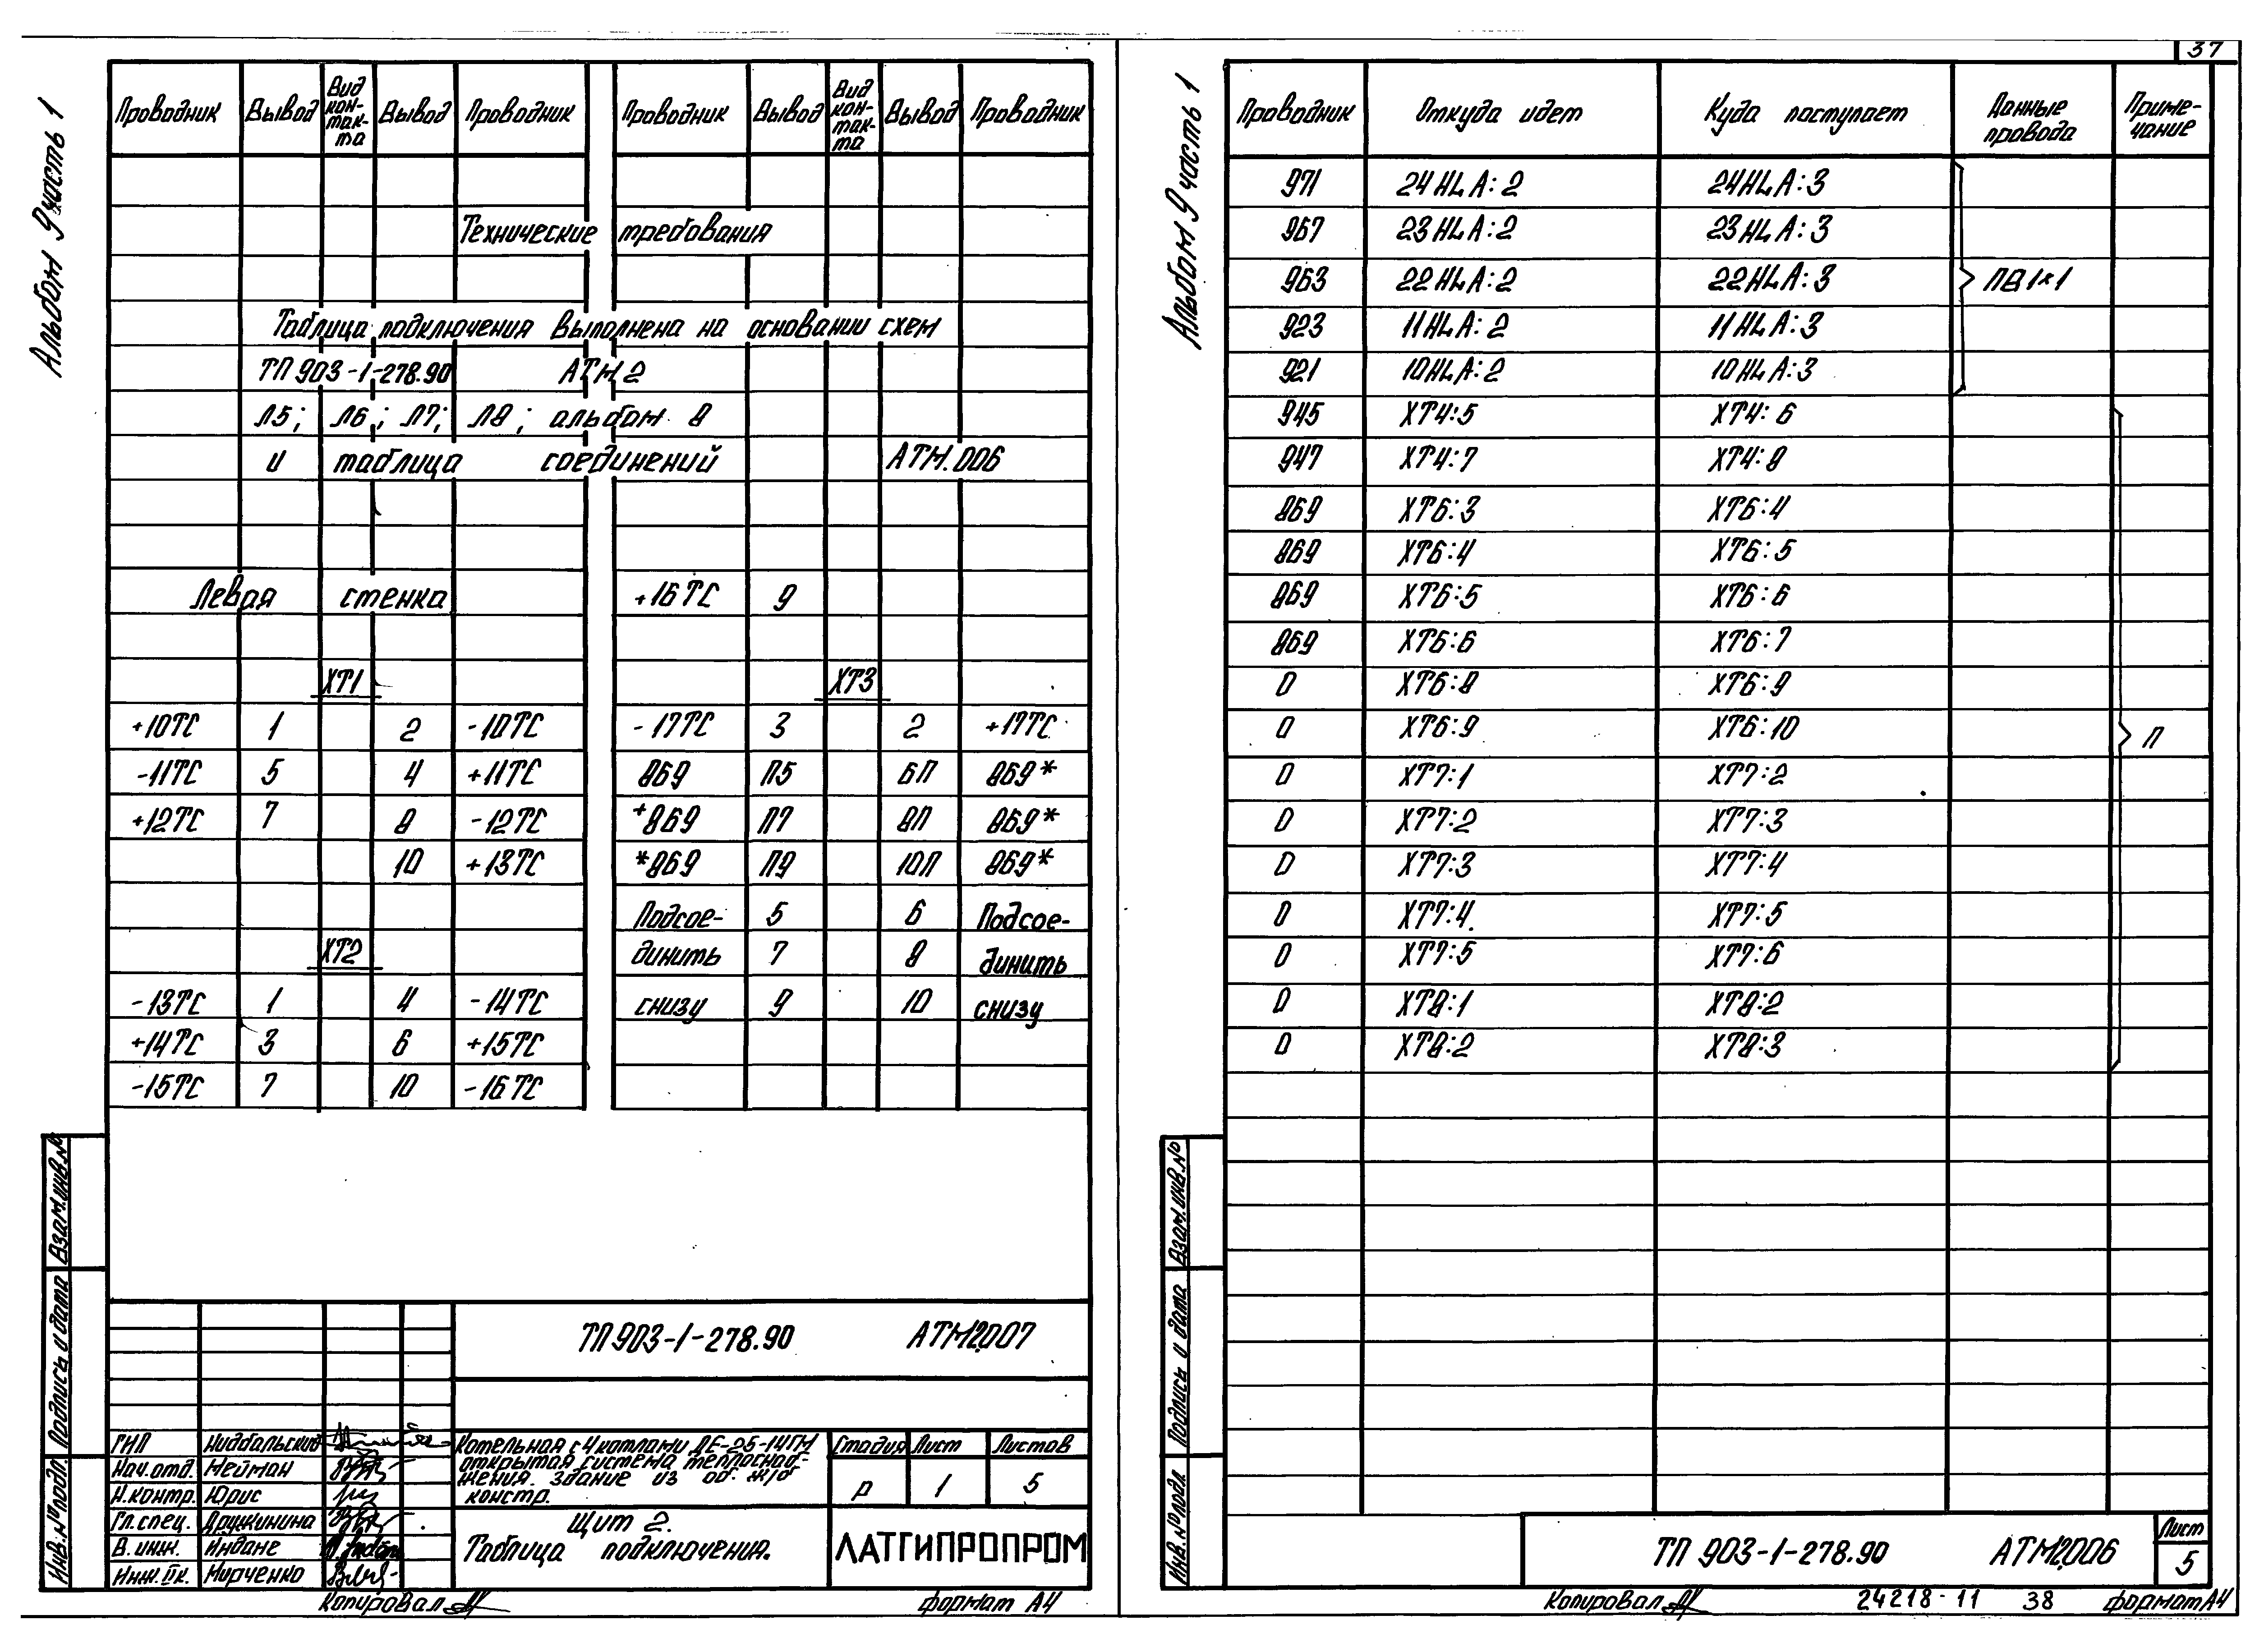 37
Альбом 9 часть 1
Проводник Вывод Вид кон-так-та Вывод Проводник Проводник Вывод Вид кон-так-та Вывод Проводник
Технические требования
Таблица подключения выполнена на основании схем
ТП 903-1-278.90 АТМ2
Л5; Л6; Л7; Л8; альбом 8
и таблица соединений АТМ.006
Левая стенка
+16ТС 9
ХТ1 ХТ3
+10ТС 1 2 -10ТС -17ТС 3 2 +17ТС
-11ТС 5 4 +11ТС 869 П5 6П 869*
+12ТС 7 8 -12ТС +869 П7 8П 869*
10 +13ТС *869 П9 10П 869*
Подсое- 5 6 Подсое-
ХТ2 динить 7 8 динить
-13ТС 1 4 -14ТС снизу 9 10 снизу
+14ТС 3 6 +15ТС
-15ТС 7 10 -16ТС
Взам.инв.№
Подпись и дата
Инв.№подл.
ТП 903-1-278.90 АТМ2.007
ГИП Нидбальский
Нач.отд. Нейман
Н.контр. Юрис
Гл.спец. Дружинина
В. инж. Индане
Инж.IIк. Мирченко
Котельная с 4 котлами ДЕ-25-14ГМ
открытая система теплоснаб-
жения. Здание из об. ж/б
констр.
Стадия Лист Листов
Р 1 5
Щит 2.
Таблица подключения.
ЛАТГИПРОПРОМ
Копировал формат А4
Альбом 9 часть 1
Проводник Откуда идет Куда поступает Данные провода Приме-чание
971 24HLA:2 24HLA:3
967 23HLA:2 23HLA:3
963 22HLA:2 22HLA:3 ПВ 1×1
923 11HLA:2 11HLA:3
921 10HLA:2 10HLA:3
945 ХТ4:5 ХТ4:6
947 ХТ4:7 ХТ4:8
869 ХТ6:3 ХТ6:4
869 ХТ6:4 ХТ6:5
869 ХТ6:5 ХТ6:6
869 ХТ6:6 ХТ6:7
0 ХТ6:8 ХТ6:9
0 ХТ6:9 ХТ6:10 П
0 ХТ7:1 ХТ7:2
0 ХТ7:2 ХТ7:3
0 ХТ7:3 ХТ7:4
0 ХТ7:4. ХТ7:5
0 ХТ7:5 ХТ7:6
0 ХТ8:1 ХТ8:2
0 ХТ8:2 ХТ8:3
Взам.инв.№
Подпись и дата
Инв.№подл.
ТП 903-1-278.90 АТМ2.006
Лист
5
Копировал 24218-11 38 формат А4